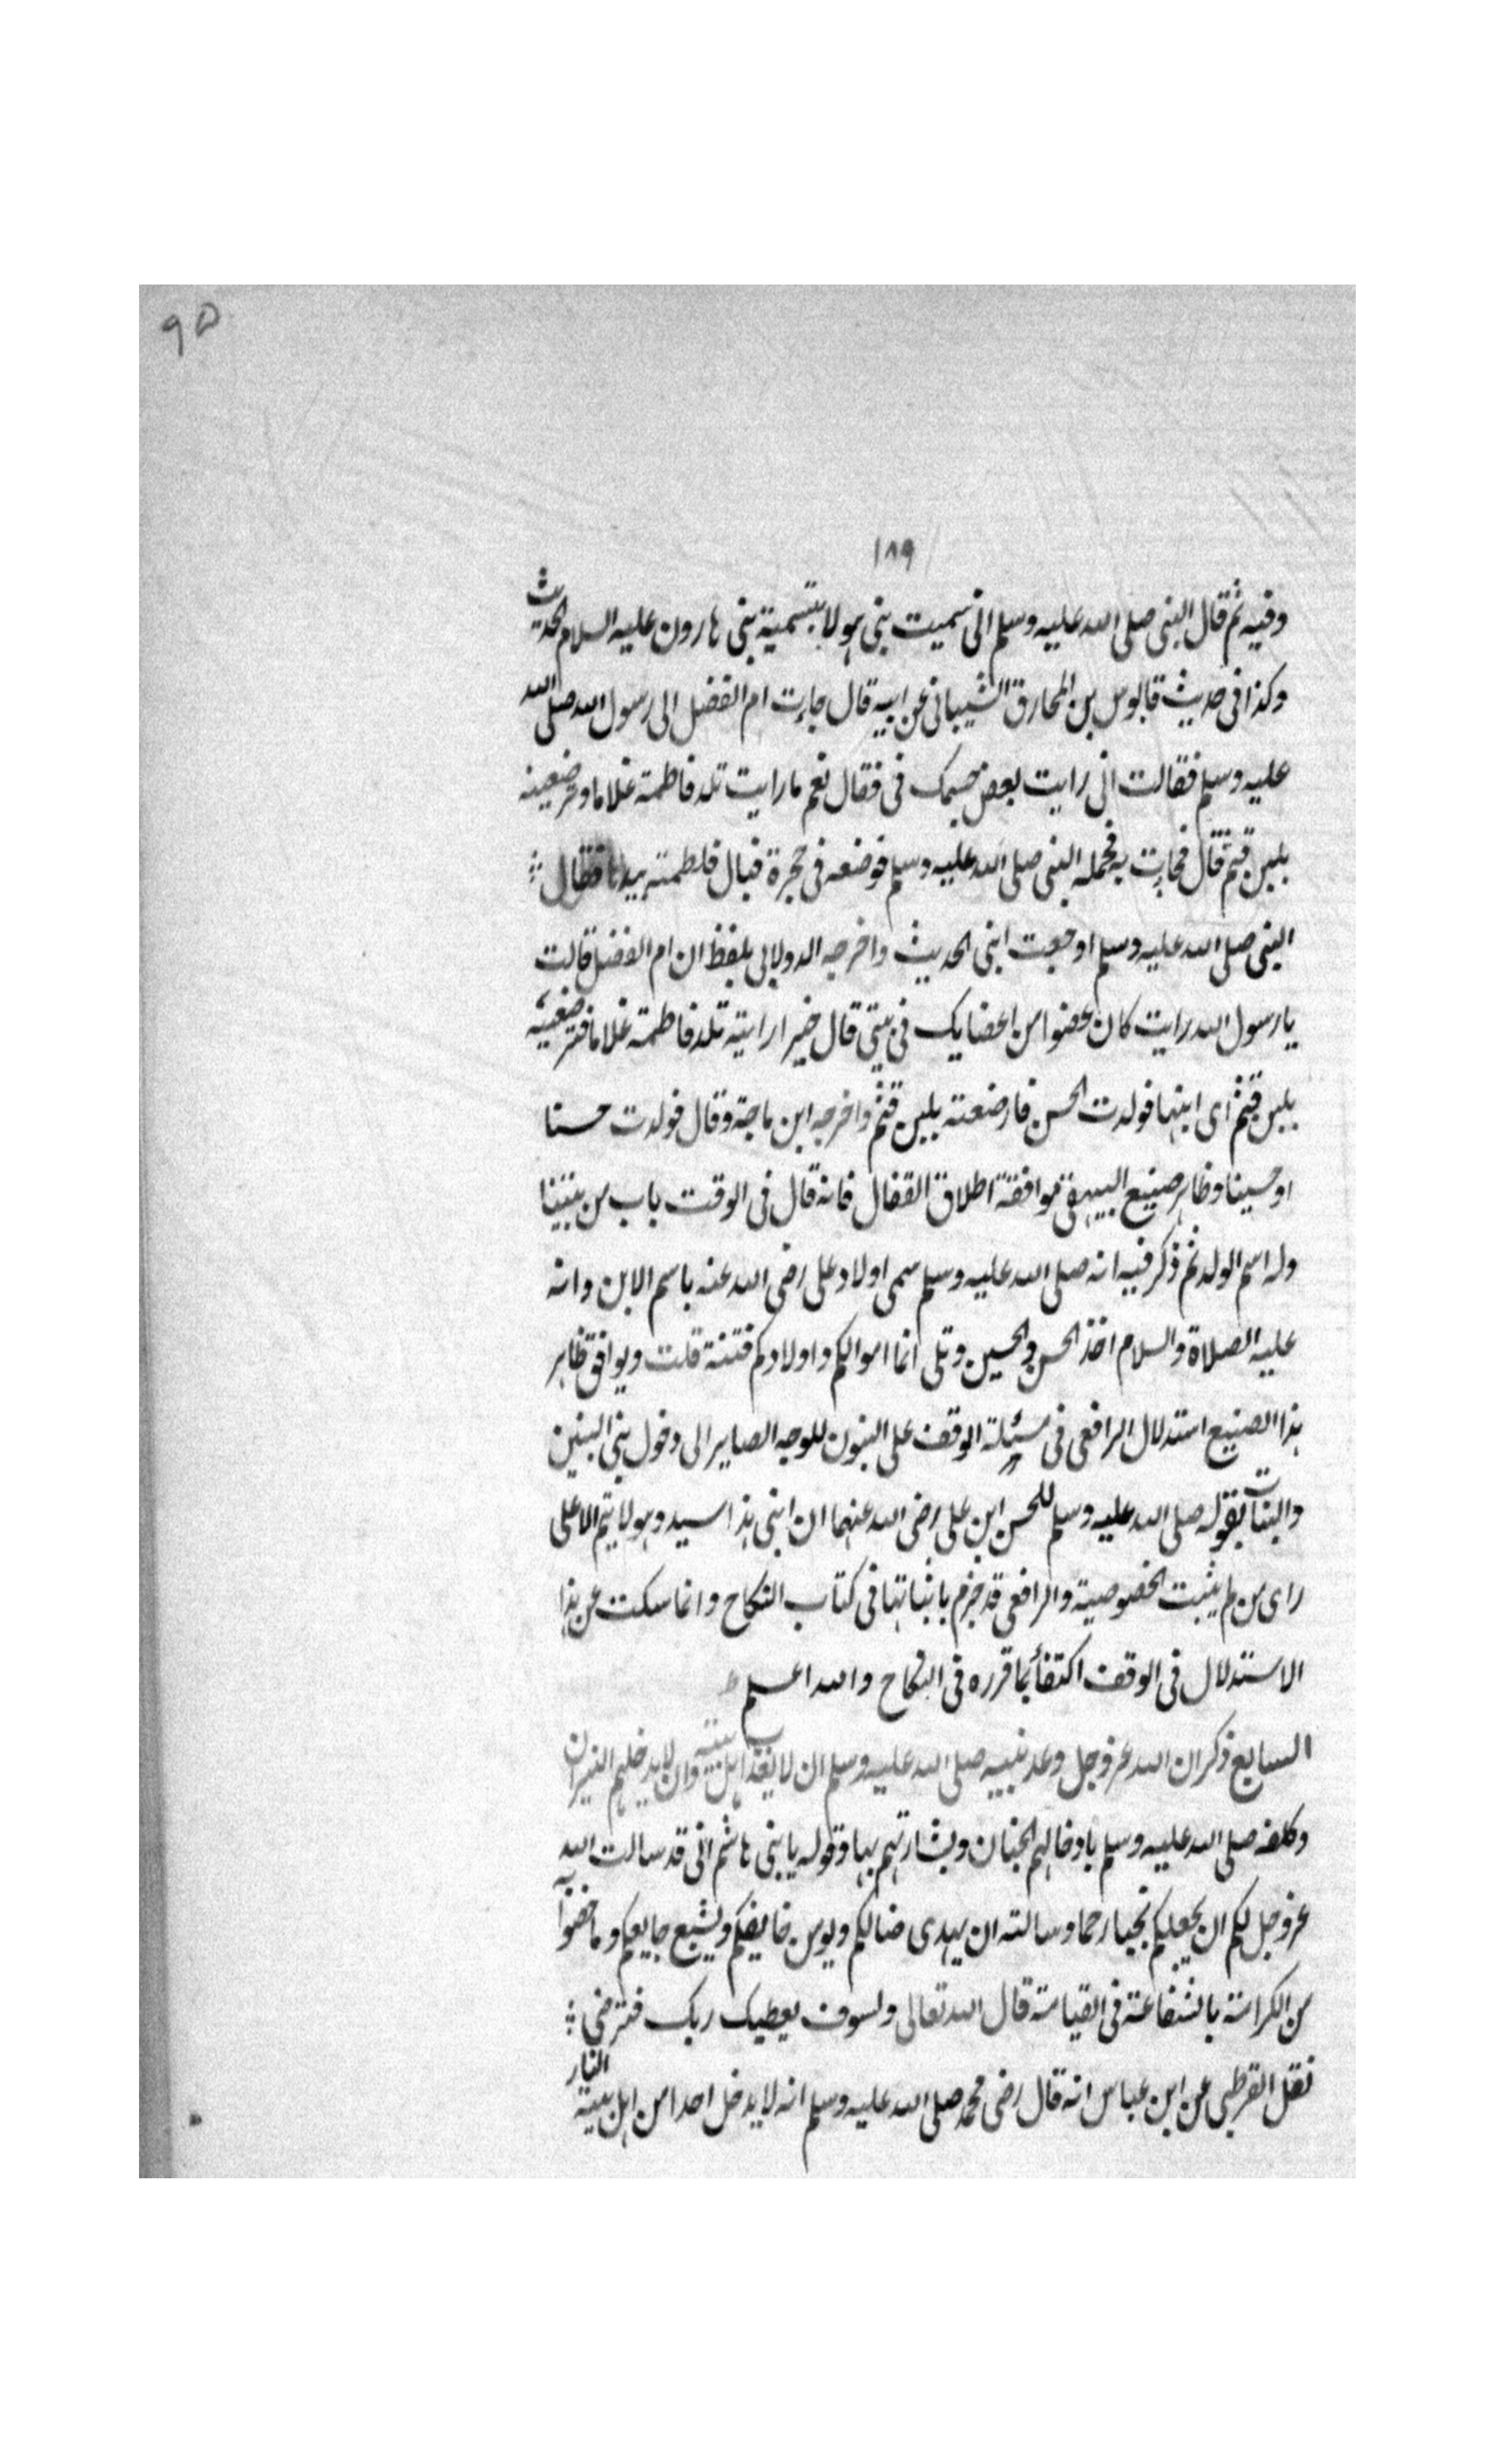 ٩٥
١٨٩
وفيه ثم قال النبى صلى الله عليه وسلم انى سميت بنى هولا بتسمية بنى هارون عليه السلام الحديث
وكذا فى حديث قابوس بن المخارق الشيبانى عن ابيه قال جاءت ام الفضل الى رسول الله صلى الله
عليه وسلم فقالت انى رايت بعض جسمك فى فقال نعم ما رايت تلد فاطمة غلاما وترضعينه
بلبن قثم قال فجاءت به فحمله النبى صلى الله عليه وسلم فوضعه فى حجرة فبال فلطمته بيدها فقال
النبى صلى الله عليه وسلم اوجعت ابنى الحديث واخرجه الدولابى بلفظ ان ام الفضل قالت
يا رسول الله رايت كان عضوا من اعضايك فى بيتى قال خيرا رايته تلد فاطمة غلاما فترضعينه
بلبن قثم اى ابنها فولدت الحسن فارضعته بلبن قثم واخرجه ابن ماجة وقال فولدت حسنا
او حسينا وظاهر صنيع البيهقى موافقة اطلاق القفال فانه قال فى الوقت باب من
وله اسم الولد ثم ذكر فيه انه صلى الله عليه وسلم سمى اولاد على رضى الله عنه باسم الابن وانه
عليه الصلاة والسلام اخذ الحسن والحسين وتلى انما اموالكم واولادكم فتنة قلت ويوافق ظاهر
هذا الصنيع استدلال الرافعى فى مسئلة الوقف على البنون للوجه الصاير الى دخول بنى البنين
والبنات بقوله صلى الله عليه وسلم للحسن ابن على رضى الله عنهما ان ابنى هذا سيد وهو لا يتم الا على
راى من لم يثبت الخصوصية والرافعى قد جزم باثباتها فى كتاب النكاح وانما سكت عن هذا
الاستدلال فى الوقف اكتفأ بما قرره فى النكاح والله اعلم
السابع ذكر ان الله عز وجل وعد نبيه صلى الله عليه وسلم ان لا يعذب اهل بيته وان لا يدخلهم النيران
وكلفه صلى الله عليه وسلم بادخالهم الجنان وبشارتهم بها وقوله يا بنى هاشم انى قد سالت الله
عز وجل لكم ان يجعلكم نجبا رحما وسالته ان يهدى ضالكم ويومن خايفكم ويشبع جايعكم وما خصوا به
من الكرامة بالشفاعة فى القيامة قال الله تعالى ولسوف يعطيك ربك فترضى
نقل القرطبى عن ابن عباس انه قال رضى محمد صلى الله عليه وسلم انه لا يدخل احدا من اهل بيته النار